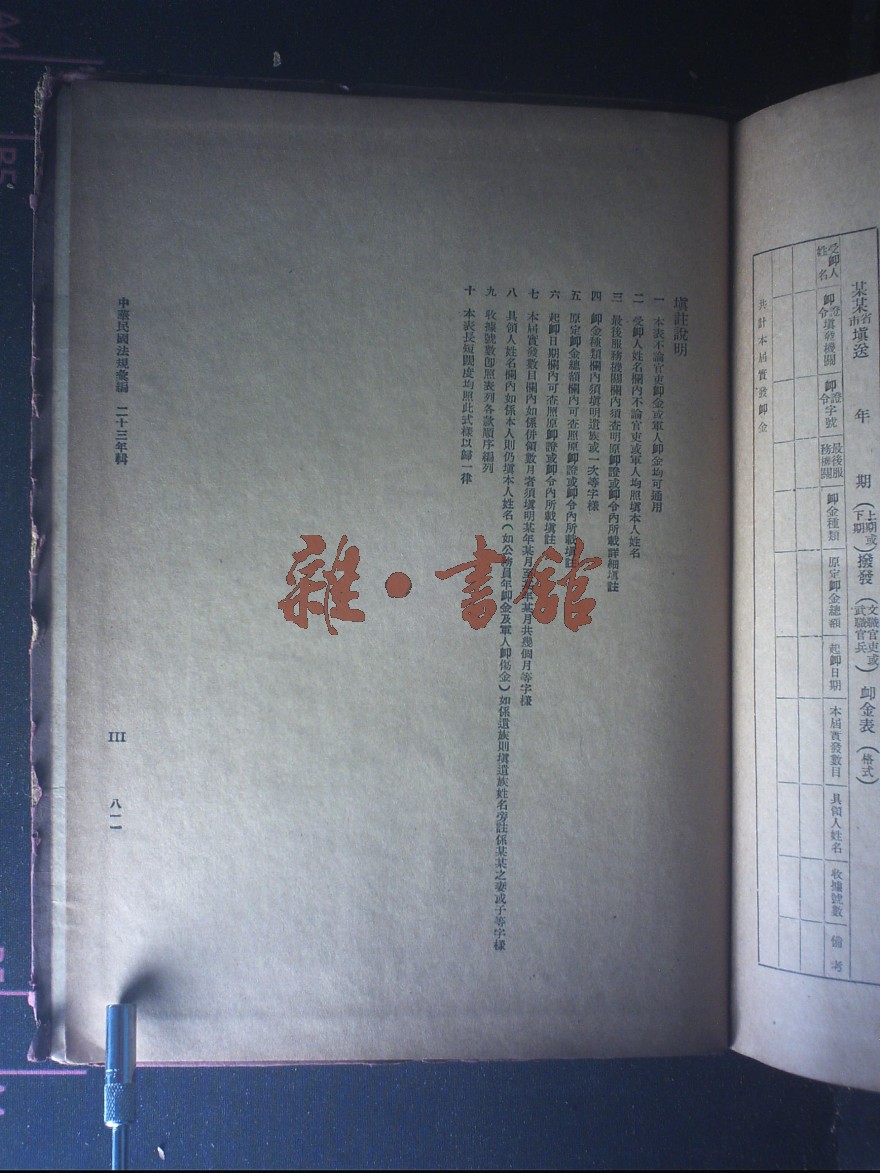 某某省市填送　年　期（上期或下期）撥發（文職官吏或武職官兵）卹金表（格式）
受卹人姓名
卹證令填發機關
卹證令字號
最後服務機關
卹金種類
原定卹金總額
起卹日期
本屆實發數目
具領人姓名
收據號數
備考
共計本屆實發卹金
填註說明
一　本表不論官吏卹金或軍人卹金均可通用
二　受卹人姓名欄內不論官吏或軍人均照填本人姓名
三　最後服務機關欄內須查明原卹證或卹令內所載詳細填註
四　卹金種類欄內須填明遺族或一次等字樣
五　原定卹金總額欄內可查照原卹證或卹令內所載填註
六　起卹日期欄內可查照原卹證或卹令內所載填註
七　本屆實發數目欄內如係併領數月者須填明某年某月至某年某月共幾個月等字樣
八　具領人姓名欄內如係本人則仍填本人姓名（如公務員年卹金及軍人卹傷金）如係遺族則填遺族姓名旁註係某某之妻或子等字樣
九　收據號數卽照表列各款順序編列
十　本表長短闊度均照此式樣以歸一律
中華民國法規彙編　二十三年輯
III　八一一
雜·書館